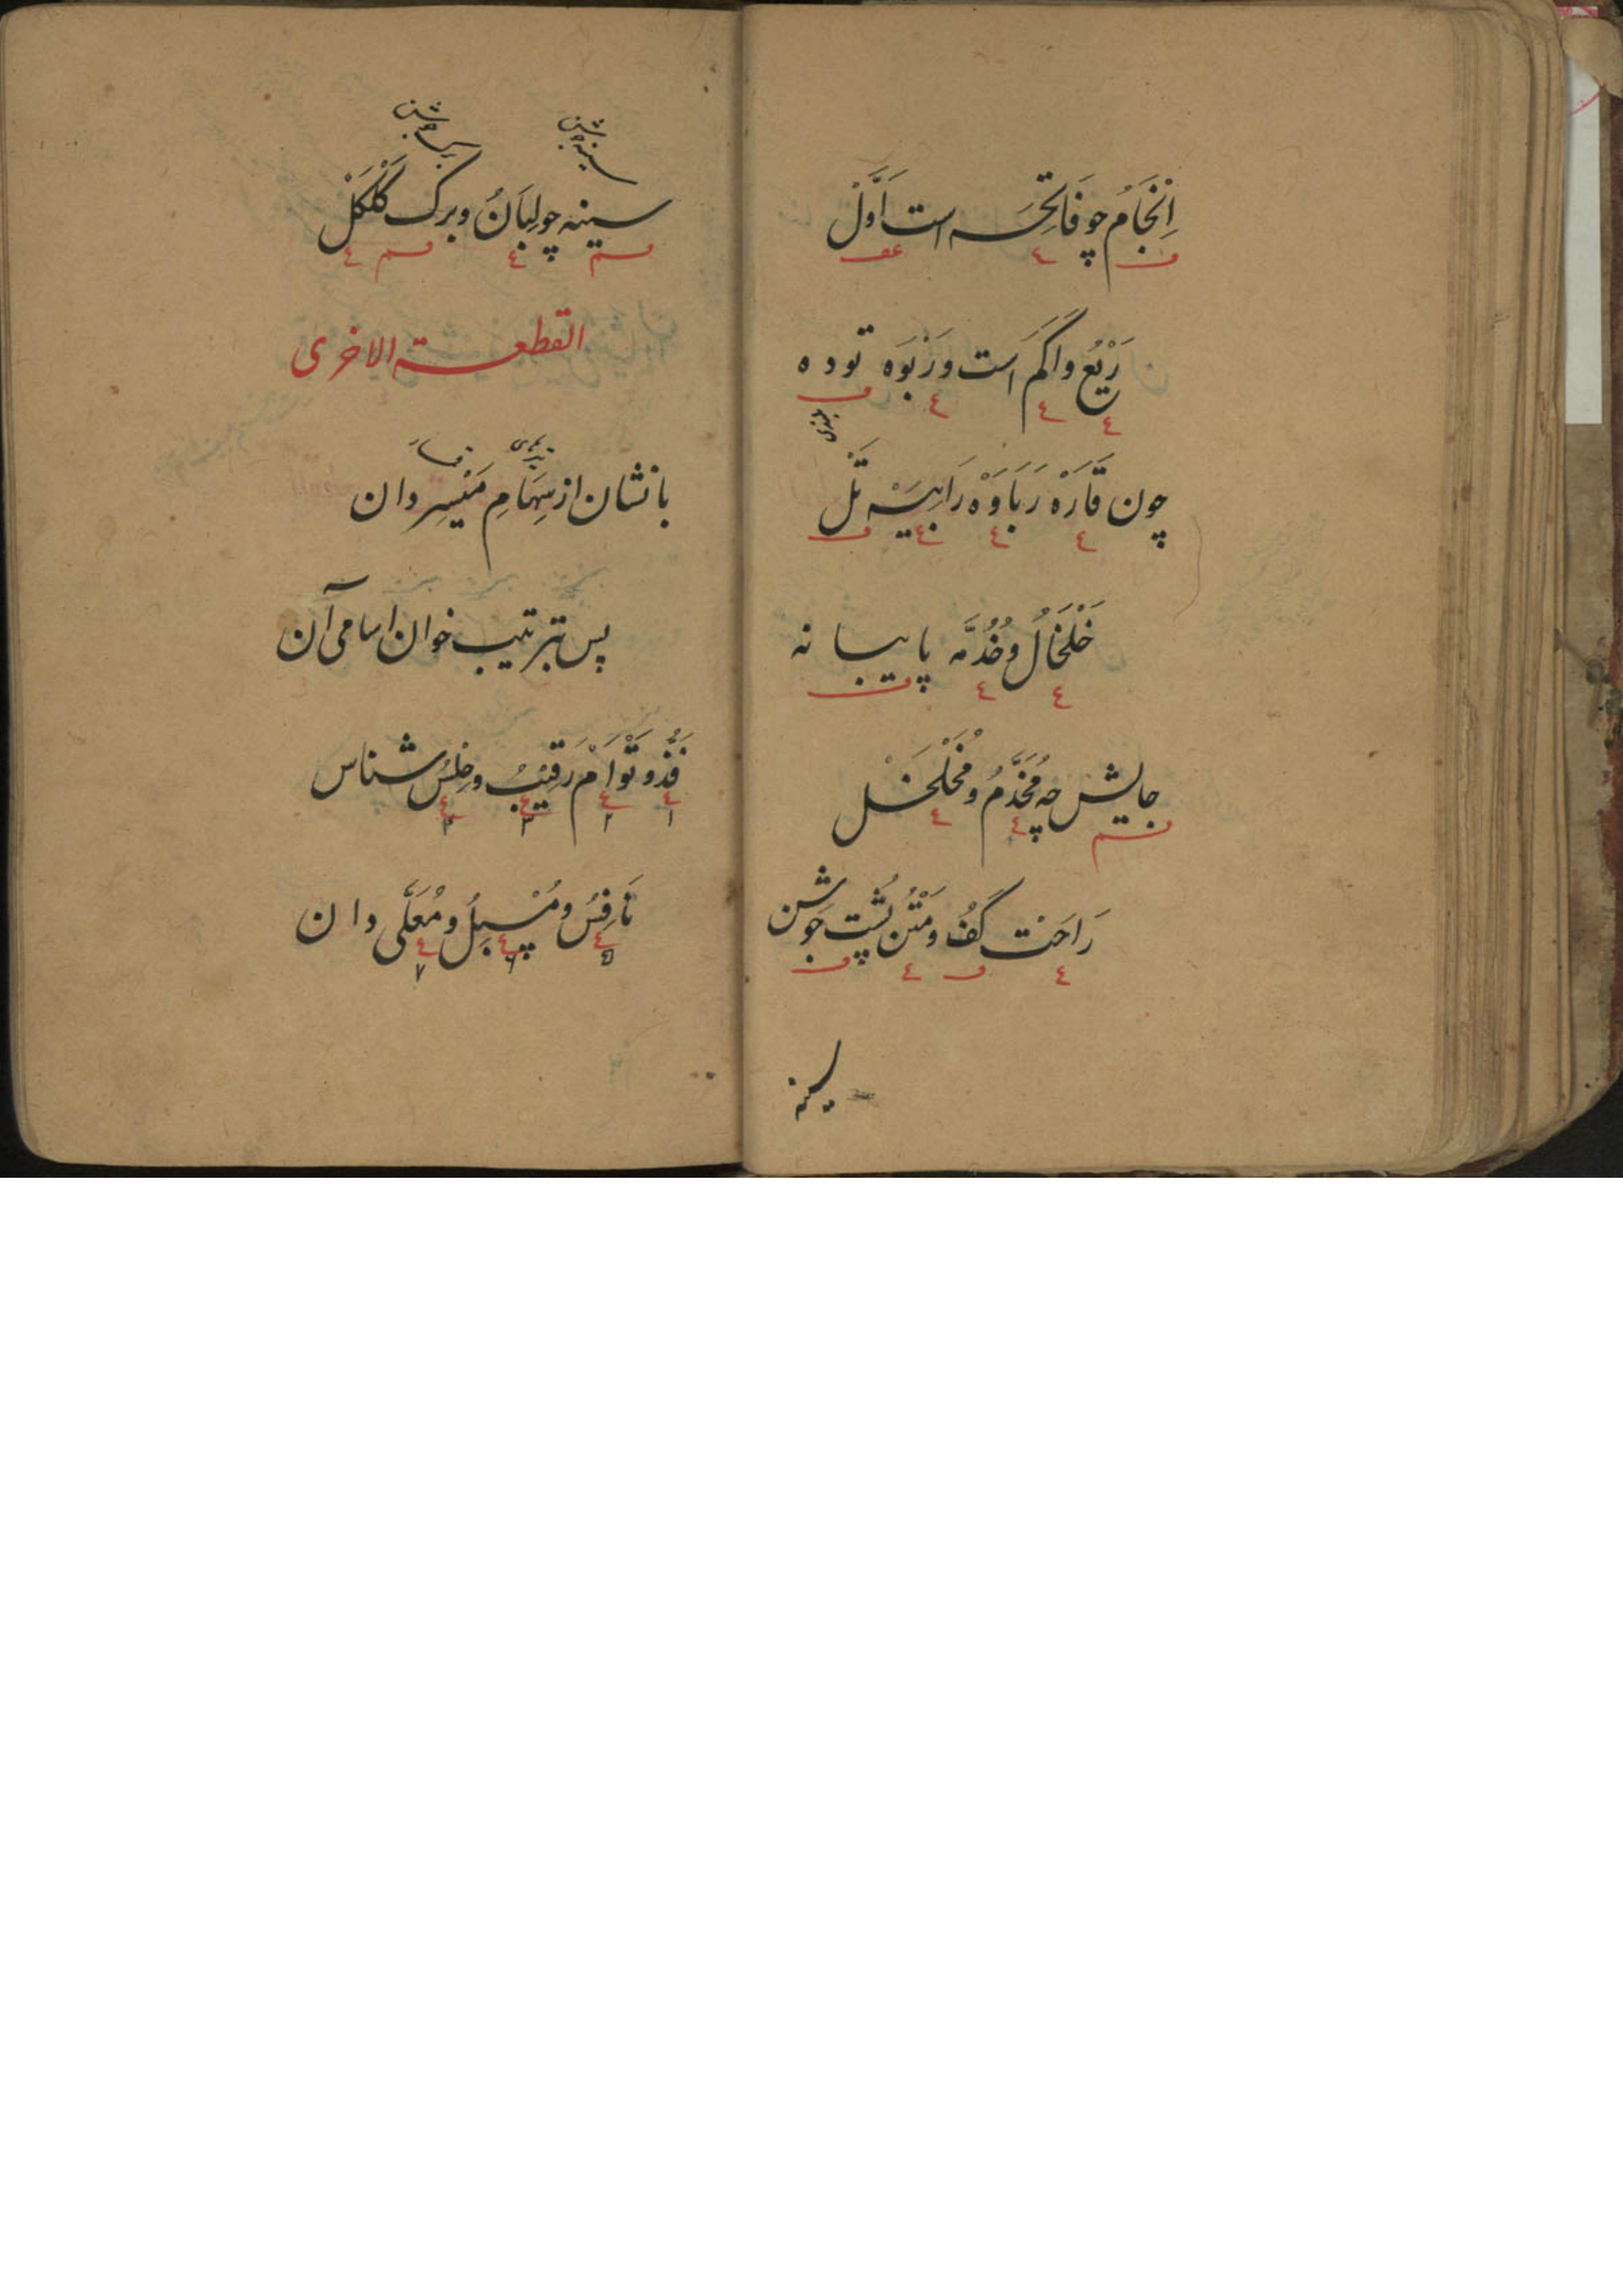 اِنْجَامُ چو فَاتِحَه است اَوَّلْ
رَیْعُ و اَکَمَ است و رَبْوَه توده
چون قَارَهْ رَبَاوَهْ رَابِیَهْ تَلْ
خَلْخَالُ و خُدُمَّه پایبانه
جایش چه مُخَدَّمُ و مُخَلْخَلْ
رَاحَتْ كَفُ و مَتْنُ پُشت جَوشن
سینه
سینه جوشن
برک جوشن
سینه چو لِبَانُ و برک کَلْکَلْ
القطعة الاخری
با نشان از سِهَامِ مَیْسِر دان
پس بترتیب خوان اسامی آن
فَذُّ و تَوْاَمْ رَقِیْبُ و حِلْسُ شناس
۱ ۲ ۳ ۴
نَافِسُ و مُسْبِلُ و مُعَلَّی دان
۵ ۶ ۷